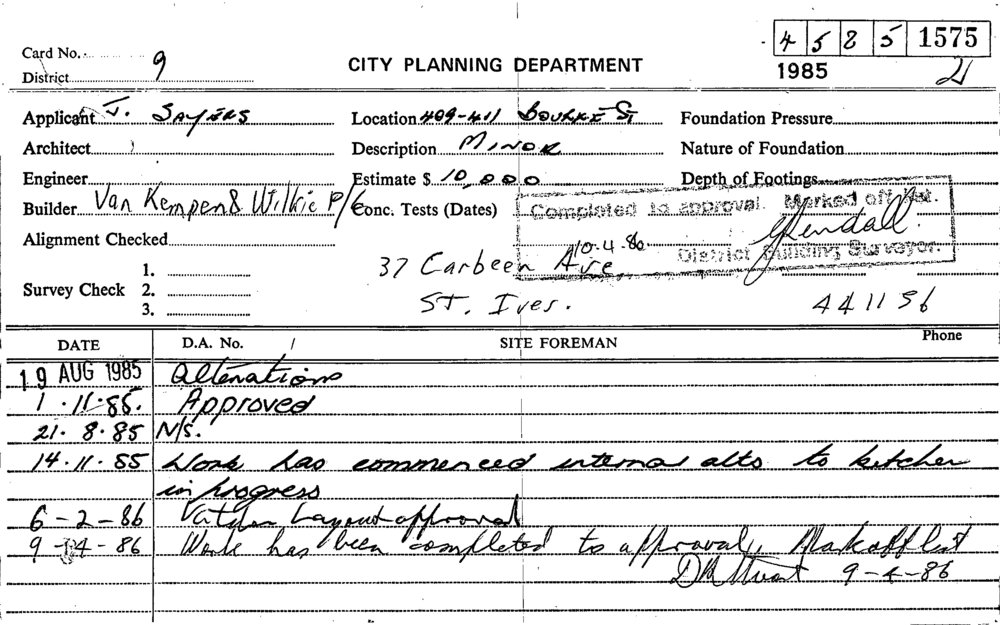 4 5 85 5 1575
Card No. 9
CITY PLANNING DEPARTMENT
1985
District
Applicant J. SAYERS Location 409-411 BOURKE ST Foundation Pressure
Architect Description MINOR Nature of Foundation
Engineer Estimate $ 10,000 Depth of Footings
Builder Van Kempen & Wilkie P/L Conc. Tests (Dates) Completed to approval. Marked off list.
Alignment Checked 10.4.86
District Building Surveyor.
37 Carbeen Ave,
1.
Survey Check 2. ST. Ives. 4411 56
3.
DATE D.A. No. / SITE FOREMAN Phone
19 AUG 1985 Alterations
1.11.85. Approved
21.8.85 N/s.
14.11.85 Work has commenced internal alts to kitchen
in progress
6-2-86 Layout approval
9-4-86 Work has been completed to approval, Mark off list
9-4-86